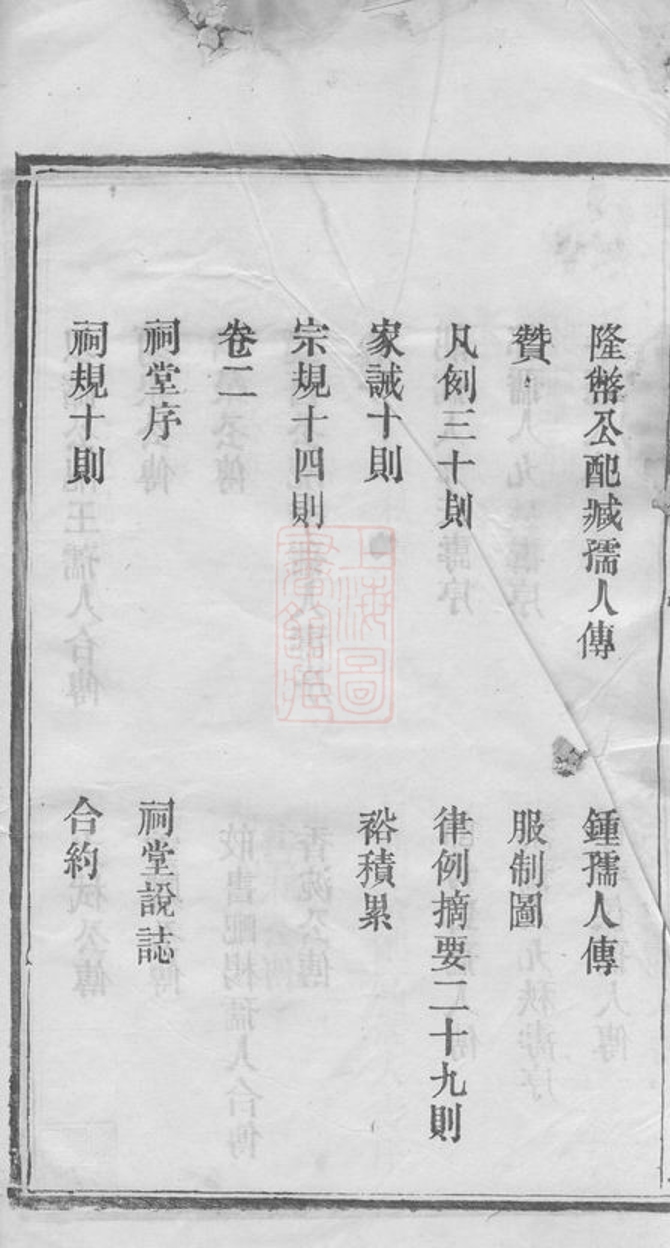 隆幣公配臧孺人傳　鍾孺人傳
贊　服制圖
凡例三十則　律例摘要二十九則
家誡十則　裕積累
宗規十四則
卷二
祠堂序　祠堂說誌
祠規十則　合約